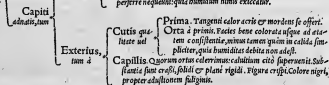 perferre nequeunt: quia humidum nimis exiccatur.
Capiti
adnatis, tum
Exterius,
tum à
Cutis qua-
litate uel
Prima. Tangenti calor acris & mordens se offert.
Orta à primis. Facies bene colorata usque ad ata-
tem consistentie, minus tamen quàm in calida sim-
pliciter, quia humiditas debita non adest.
Capillis. Quorum ortus celerrimus: caluitium citò superuenit. Sub-
stantia sunt crassi, solidi & planè rigidi. Figura crispi. Colore nigri,
propter adustionem fuliginis.